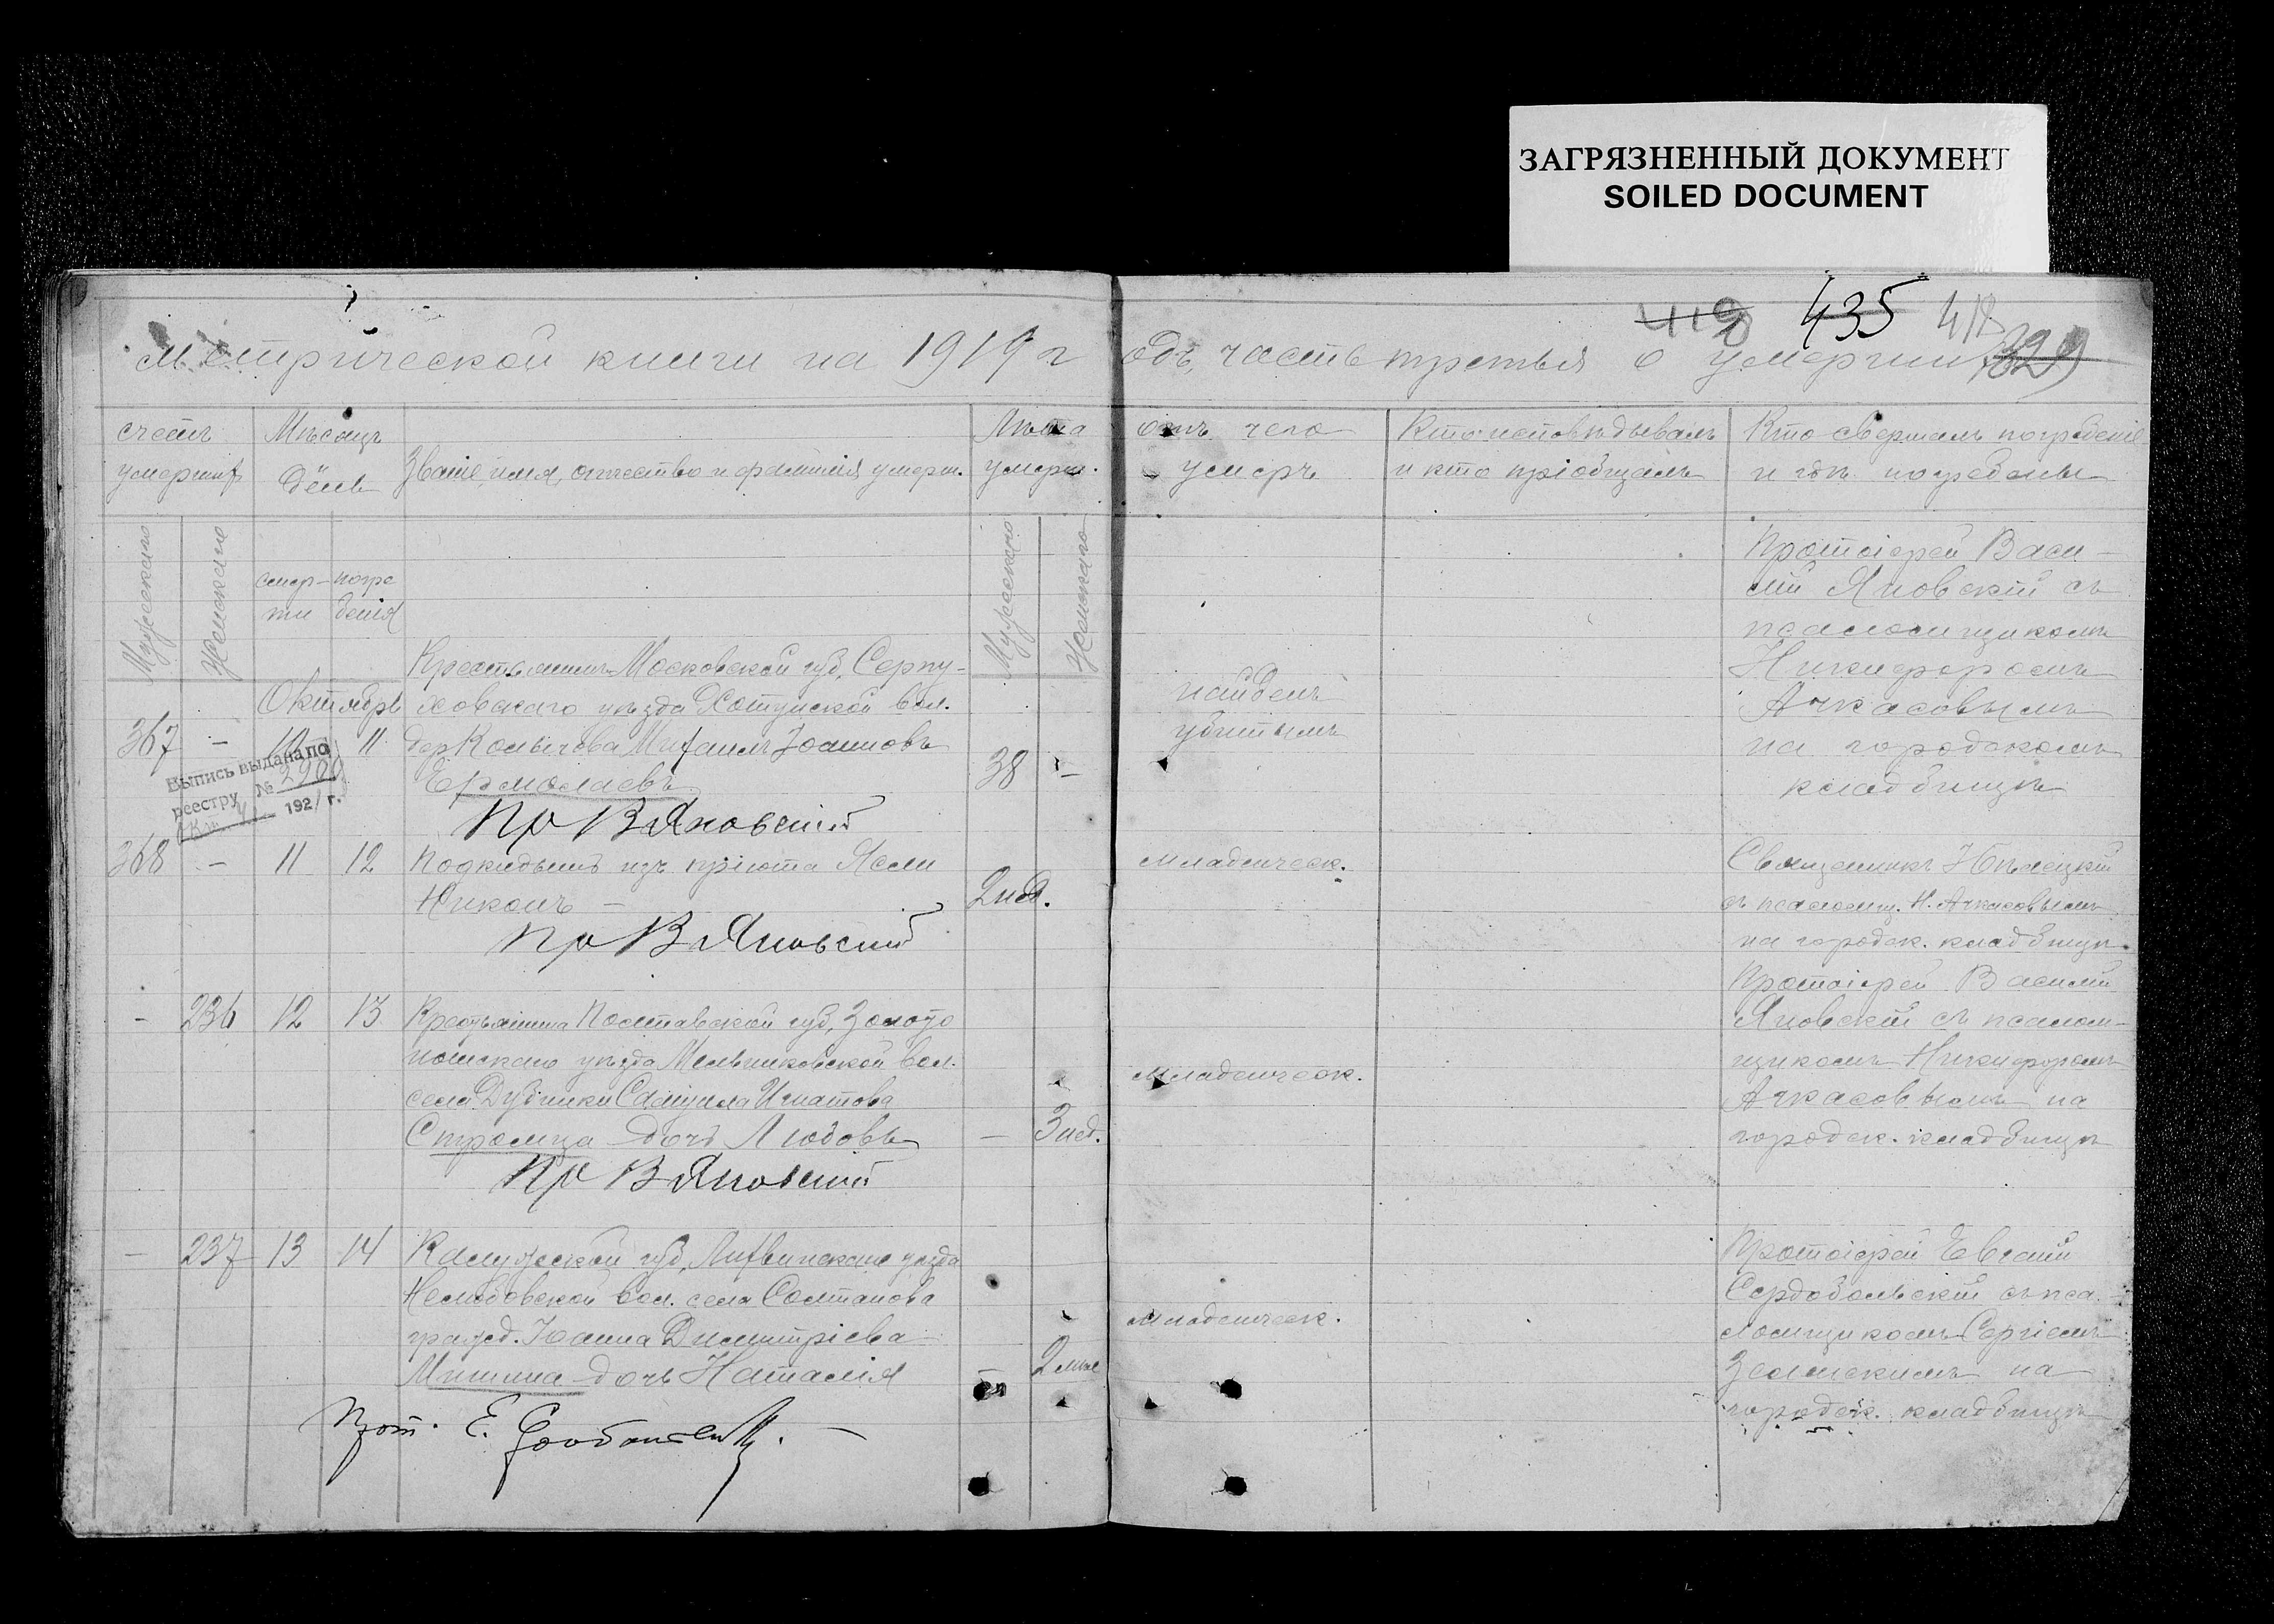 ЗАГРЯЗНЕННЫЙ ДОКУМЕНТ
SOILED DOCUMENT
419 435 418
329
метрической книги на 1919 г одъ, часть третья о умерших
счетъ умершихъ
Мѣсяцъ день
Званіе, имя, отчество и фамилія умерш.
Лѣта умерш.
отъ чего умеръ
Кто исповѣдывалъ и кто пріобщалъ
Кто совершалъ погребеніе и гдѣ погребены
Мужескаго
Женскаго
смер- ти
погре бенія
Мужескаго
Женскаго
Октябрь
367 - 10 11
Крестьянинъ Московской губ, Серпу-
ховскаго уѣзда Хотунской вол.
дер Колычева Михаилъ Іоанновъ
Ермолаевъ
38 -
найденъ
убитымъ
Протоіерей Васи-
лій Яновскій съ
псаломщикомъ
Никифоромъ
Ачкасовымъ
на городскомъ
кладбищѣ
Выпись выдана по
реестру № 2900
192/ г.
Пр В Яновский
368 - 11 12
Подкидышъ изъ пріюта Ясли
Никонъ -
2 нед.
младенческ.
Священникъ
съ псаломщ. Н. Ачкасовымъ
на городск. кладбищѣ
Пр В Яновский
- 236 12 13
Крестьянина Полтавской губ, Золото
ношскаго уѣзда Мельниковской вол.
села Дубинки Самуила Игнатова
Стромца дочь Любовь
- 3 нед.
младенческ.
Протоіерей Василій
Яновскій съ псалом-
щикомъ Никифоромъ
Ачкасовымъ на
городск. кладбищѣ
Пр В Яновский
- 237 13 14
Калужской губ, Лихвинскаго уѣзда
вол. села Солтанова
гражд. Іоанна Димитріева
Мишина дочь Наталія
- 2 мѣс
младенческ.
Протоіерей Евгеній
Сердобольскій съ пса-
ломщикомъ Сергіемъ
на
городск. кладбищѣ
Прот. Е.